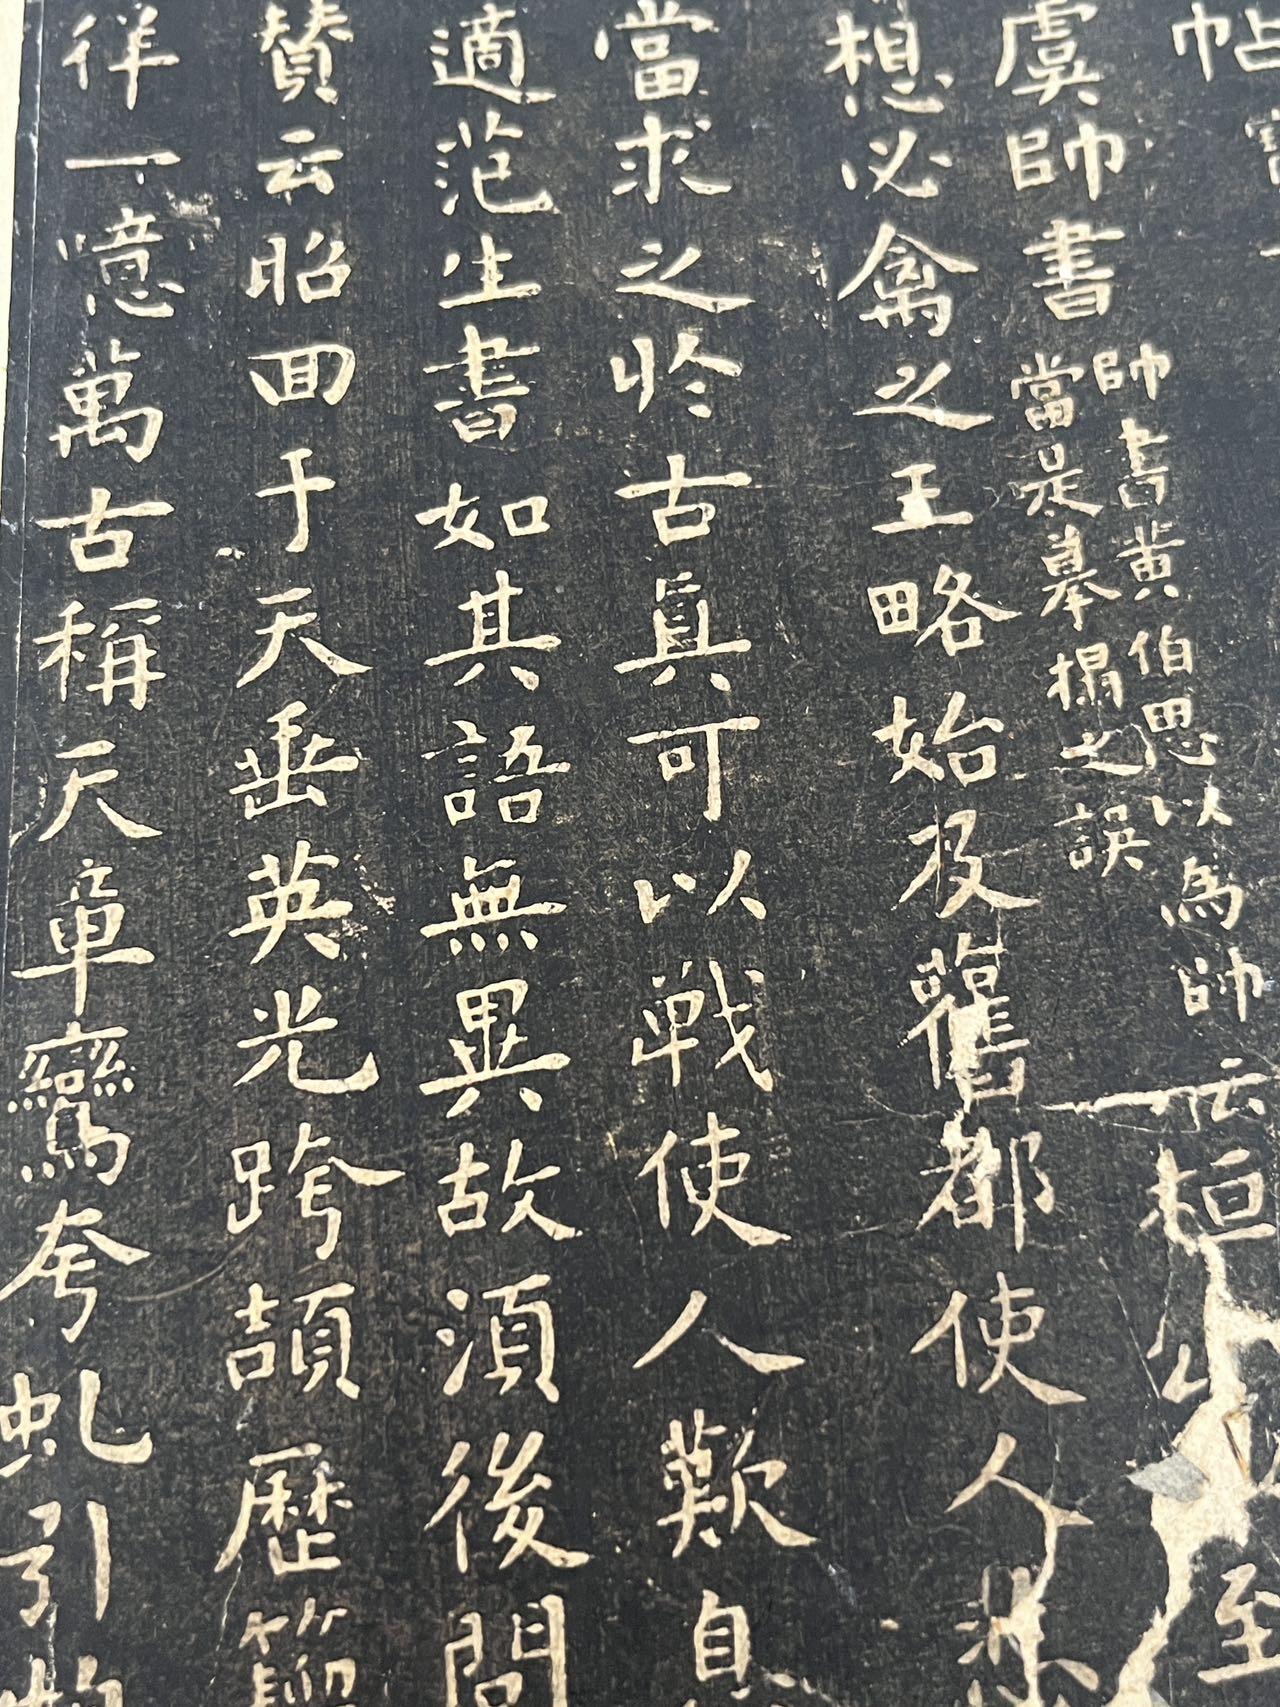 帖
至
虞帥書
帥書黃伯思以為帥云桓公至
當是摹搨之誤
想必禽之王略始及舊都使人悲
當求之於古真可以戰使人歎息
適范生書如其語無異故須後問
贊云昭回于天垂英光跨頡歷籀
徉一噫萬古稱天章鸞夸虬引